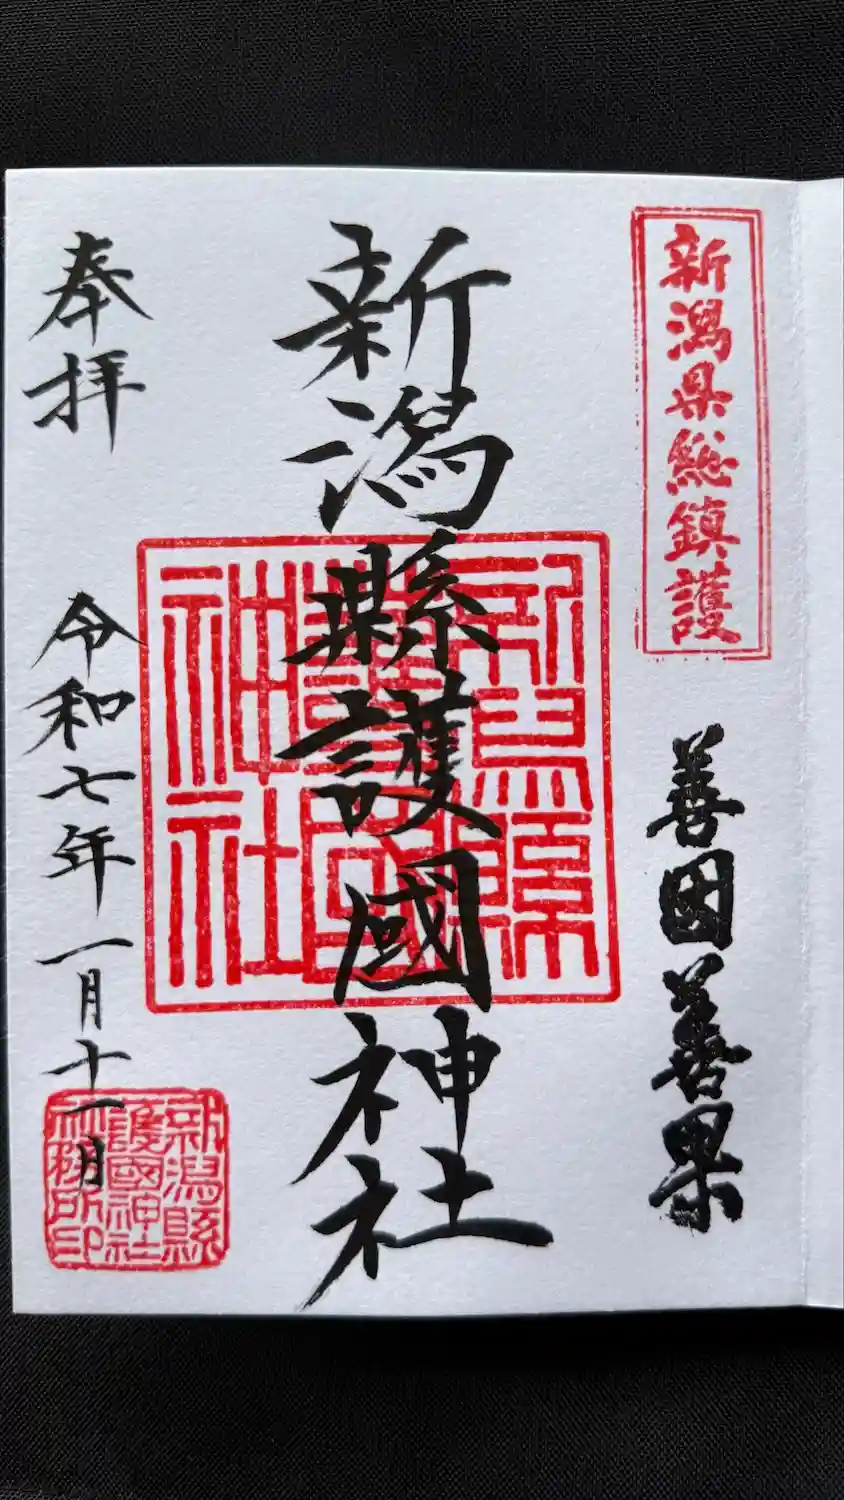 新潟県総鎮護
善因善果
新潟縣護國神社
新潟縣
護國
神社
奉拝
令和七年一月十一日
新潟縣
護國神社
社務所印